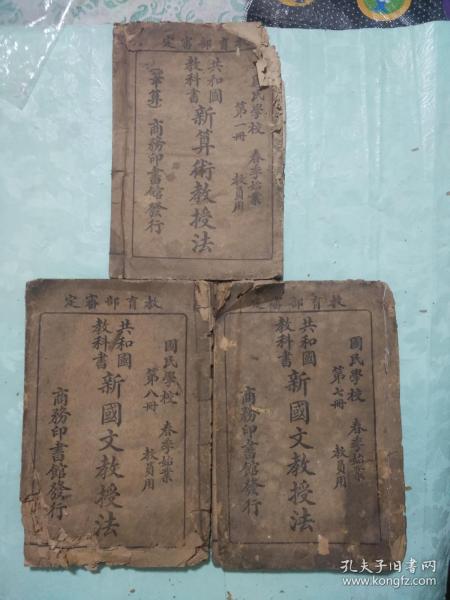 教育部審定
國民學校 春季始業
第一冊 教員用
共和國
教科書
新算術教授法
(筆算)
商務印書館發行
教育部審定
國民學校 春季始業
第八冊 教員用
共和國
教科書
新國文教授法
商務印書館發行
教育部審定
國民學校 春季始業
第七冊 教員用
共和國
教科書
新國文教授法
商務印書館發行
孔夫子旧书网
www.kongfz.com